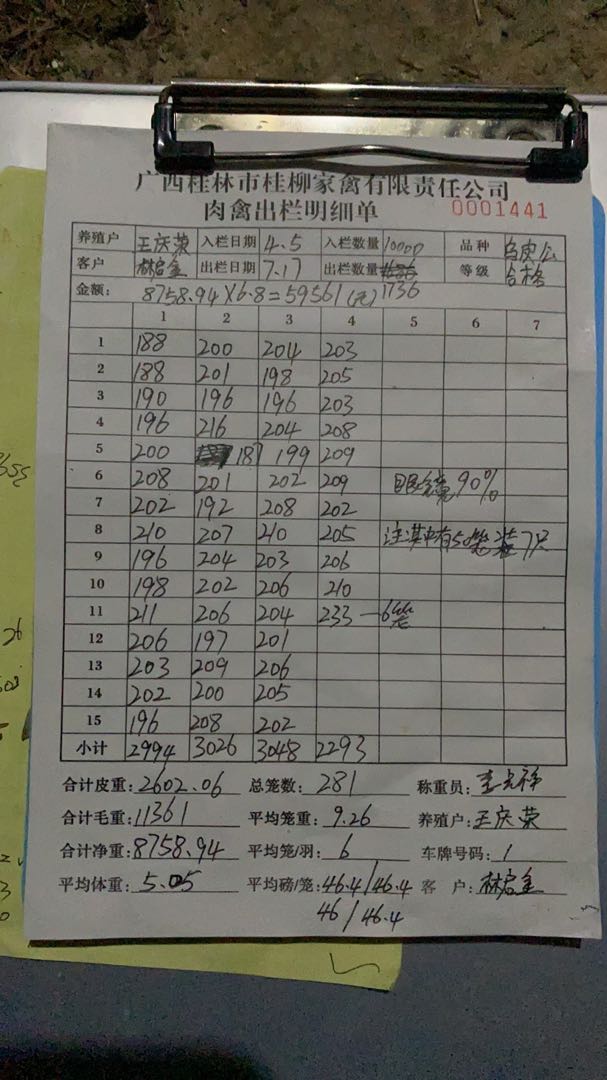 广西桂林市桂柳家禽有限责任公司
肉禽出栏明细单 0001441
养殖户 王庆荣 入栏日期 4.5 入栏数量 10000 品种 乌皮公
客户 林启金 出栏日期 7.17 出栏数量 1736 等级 合格
金额: 8758.94×6.8=59561(元)
1 2 3 4 5 6 7
1 188 200 204 203
2 188 201 198 205
3 190 196 196 203
4 196 216 204 208
5 200 187 199 209
6 208 201 202 209 眼 90%
7 202 192 208 202
8 210 207 210 205 注:其中有50笼装7只
9 196 204 203 206
10 198 202 206 210
11 211 206 204 233 一6笼
12 206 197 201
13 203 209 206
14 202 200 205
15 196 208 202
小计 2994 3026 3048 2293
合计皮重: 2602.06 总笼数: 281 称重员:
合计毛重: 11361 平均笼重: 9.26 养殖户: 王庆荣
合计净重: 8758.94 平均笼/羽: 6 车牌号码: 1
平均体重: 5.05 平均磅/笼: 46.4/46.4 客户: 林启金
46/46.4